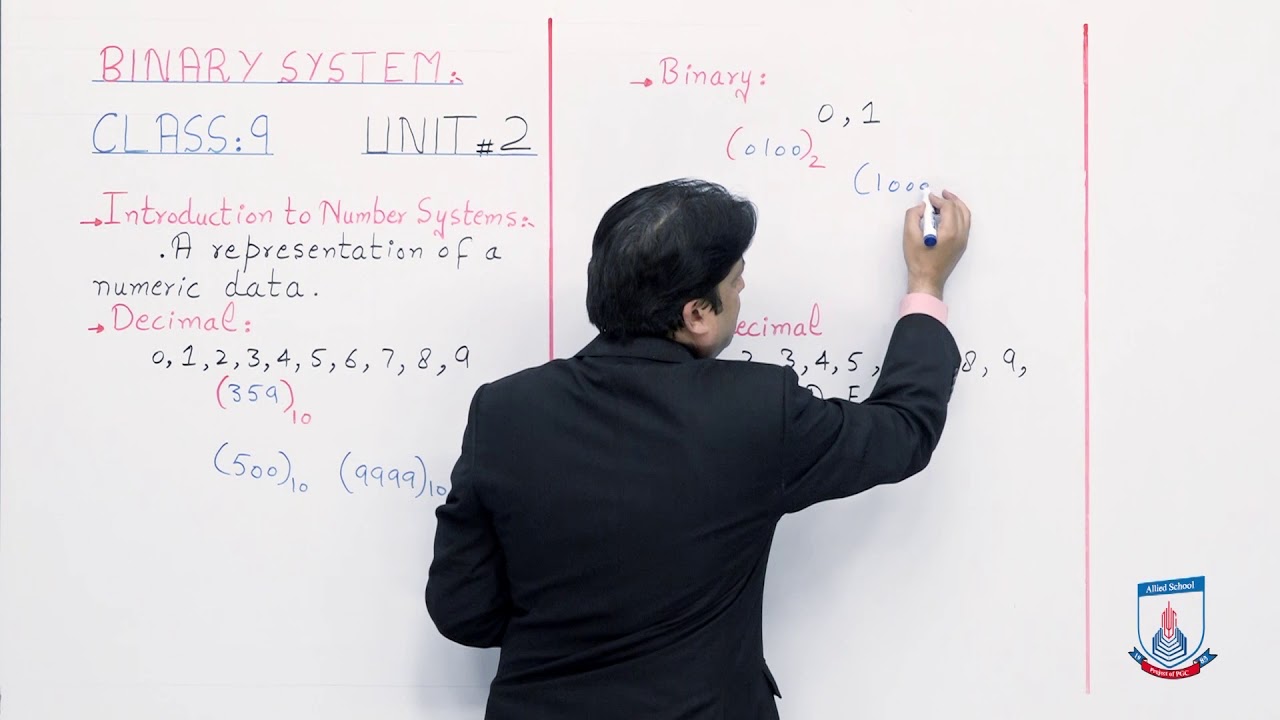 BINARY SYSTEM:
CLASS:9 UNIT #2
→Introduction to Number Systems:
.A representation of a
numeric data.
→Decimal:
0, 1, 2, 3, 4, 5, 6, 7, 8, 9
(359)10
(500)10 (9999)10
→Binary:
0, 1
(0100)2
(1000
ecimal
3, 4, 5, 8, 9,
Allied School
Project of PGC